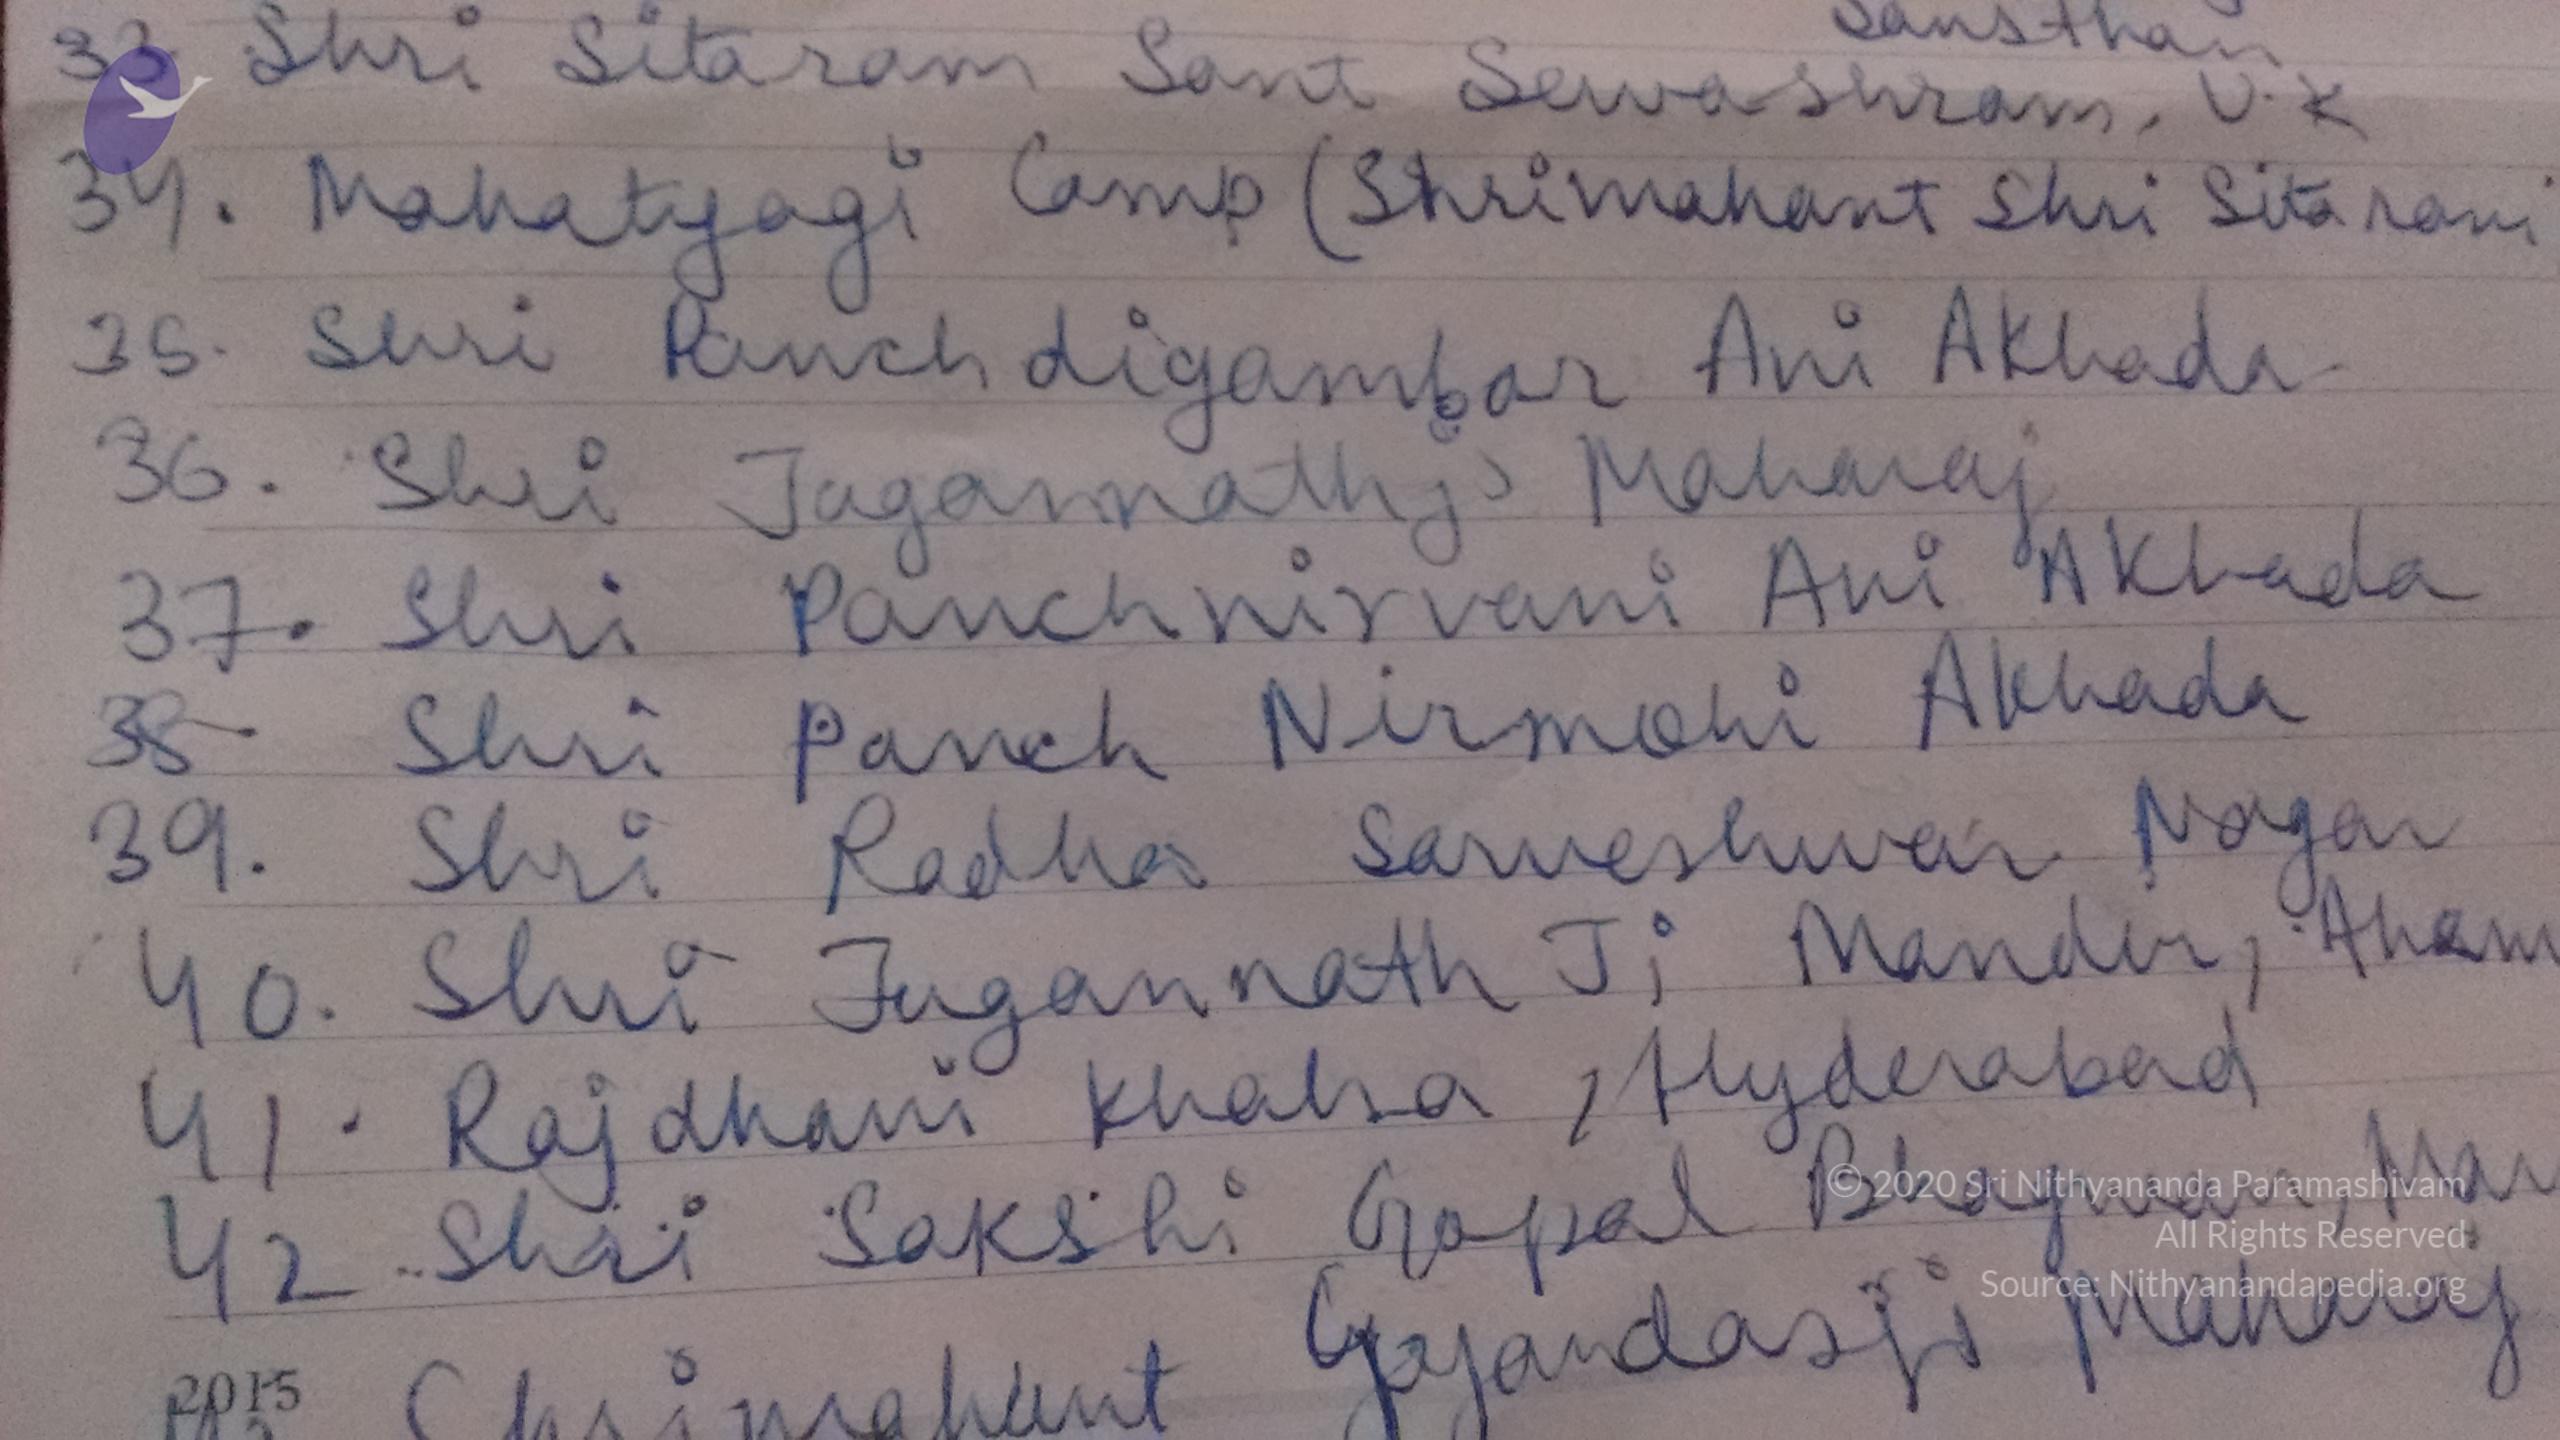 Sansthan
33 Shri Sitaram Sant Sewashram, U.K
34. Mahatyagi Camp (Shrimahant Shri Sitaram
35. Shri Panchdigambar Ani Akhada
36. Shri Jagannathji Maharaj
37. Shri Panchnirvani Ani Akhada
38 Shri Panch Nirmohi Akhada
39. Shri Radha Sarveshwar Nagar
40. Shri Jugannath Ji Mandir,
41. Rajdhani Khalsa, Hyderabad
42 Shri Sakshi Gopal Bhagwan,
©2020 Sri Nithyananda Paramashivam
All Rights Reserved
Source: Nithyanandapedia.org
2015
Shrimahant Gyandasji Maharaj